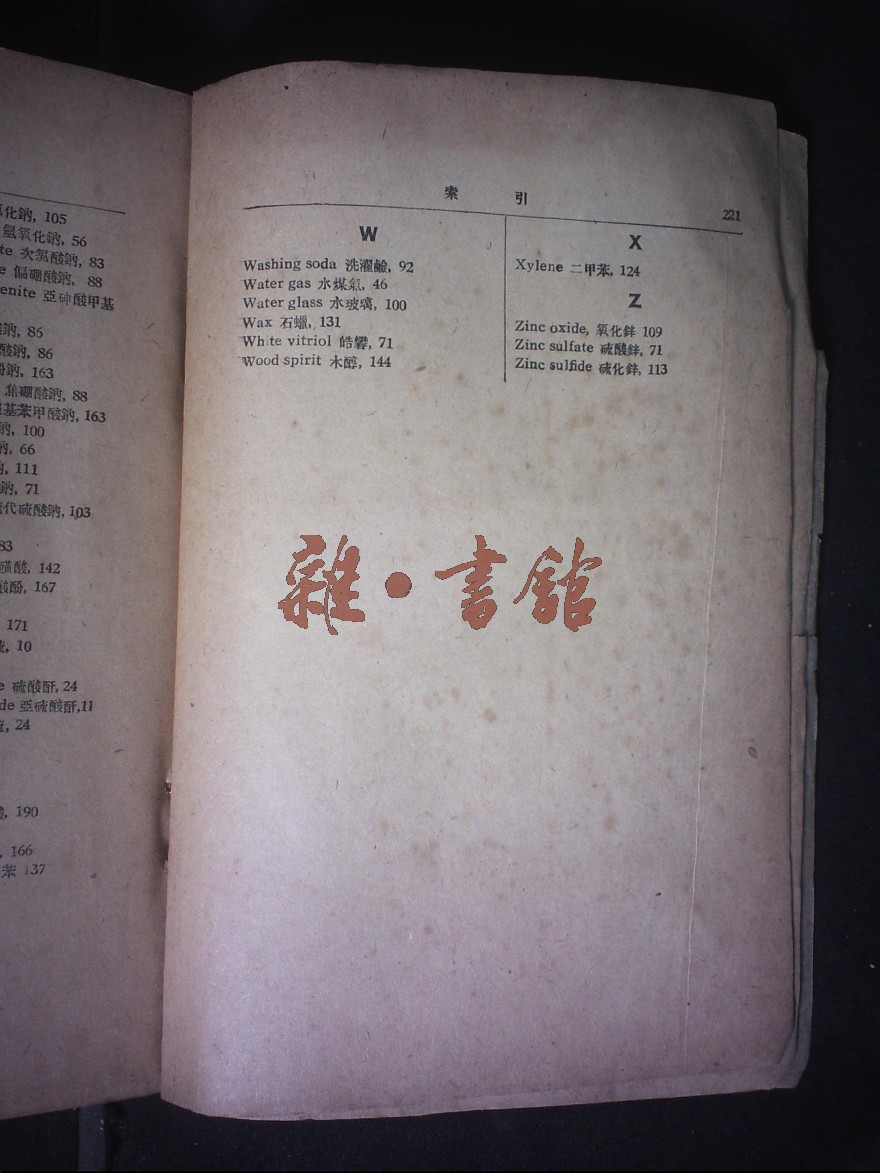 化鈉, 105
氫氧化鈉, 56
te 次氯酸鈉, 83
e 偏硼酸鈉, 88
enite 亞砷酸甲基
鈉, 86
酸鈉, 86
鈉, 163
焦硼酸鈉, 88
基苯甲酸鈉, 163
鈉, 100
鈉, 66
, 111
鈉, 71
代硫酸鈉, 103
83
磺酸, 142
酸酚, 167
171
, 10
e 硫酸酐, 24
de 亞硫酸酐,11
, 24
, 190
, 166
苯 137
索 引
221
W
Washing soda 洗濯鹼, 92
Water gas 水煤氣, 46
Water glass 水玻璃, 100
Wax 石蠟, 131
White vitriol 皓礬, 71
Wood spirit 木醇, 144
X
Xylene 二甲苯, 124
Z
Zinc oxide, 氧化鋅 109
Zinc sulfate 硫酸鋅, 71
Zinc sulfide 硫化鋅, 113
雜·書館